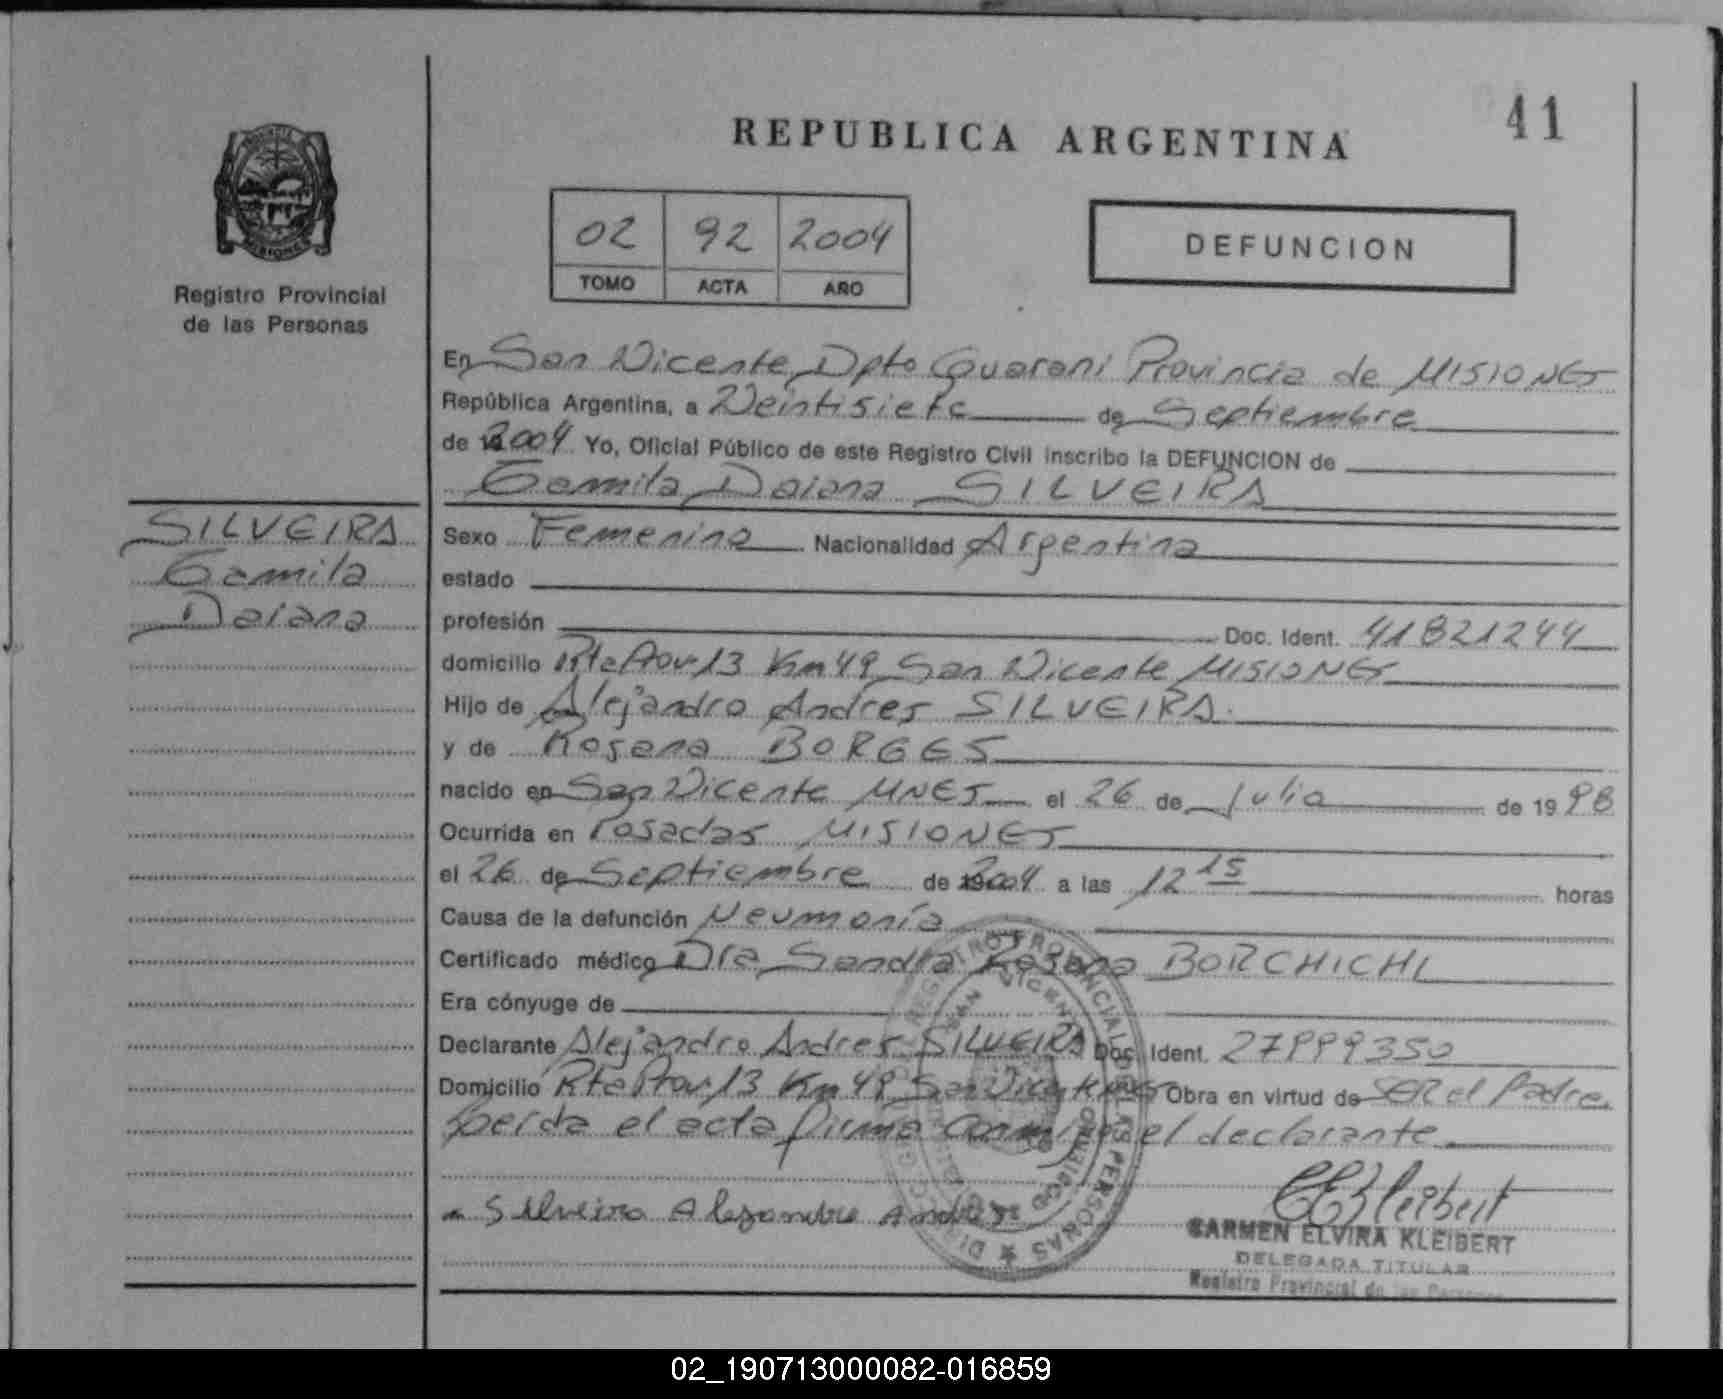 REPUBLICA ARGENTINA
41
02 92 2004
TOMO ACTA AÑO
DEFUNCION
PROVINCIA
MISIONES
Registro Provincial
de las Personas
SILVEIRA
Camila
Daiana
En San Vicente Dpto Guarani Provincia de MISIONES
República Argentina, a Veintisiete de Septiembre
de 2004 Yo, Oficial Público de este Registro Civil inscribo la DEFUNCION de
Camila Daiana SILVEIRA
Sexo Femenina Nacionalidad Argentina
estado
profesión Doc. Ident. 41821244
domicilio Rta Prov. 13 Km 49 San Vicente MISIONES
Hijo de Alejandro Andres SILVEIRA
y de Rosana BORGES
nacido en San Vicente MNES el 26 de Julio de 1998
Ocurrida en Posadas MISIONES
el 26 de Septiembre de 2004 a las 12 15 horas
Causa de la defunción Neumonía
Certificado médico Dra Sandra Rosana BORCHICHI
Era cónyuge de
Declarante Alejandro Andres SILVEIRA Doc. Ident. 27999350
Domicilio Rta Prov. 13 Km 49 San Vicente Obra en virtud de SER el Padre.
Leida el acta firma Conmigo el declarante
Silveira Alejandro Andres
CEKleibert
CARMEN ELVIRA KLEIBERT
DELEGADA TITULAR
Registro Provincial de las Personas
REGISTRO PROVINCIAL DE LAS PERSONAS
SAN VICENTE
02_190713000082-016859